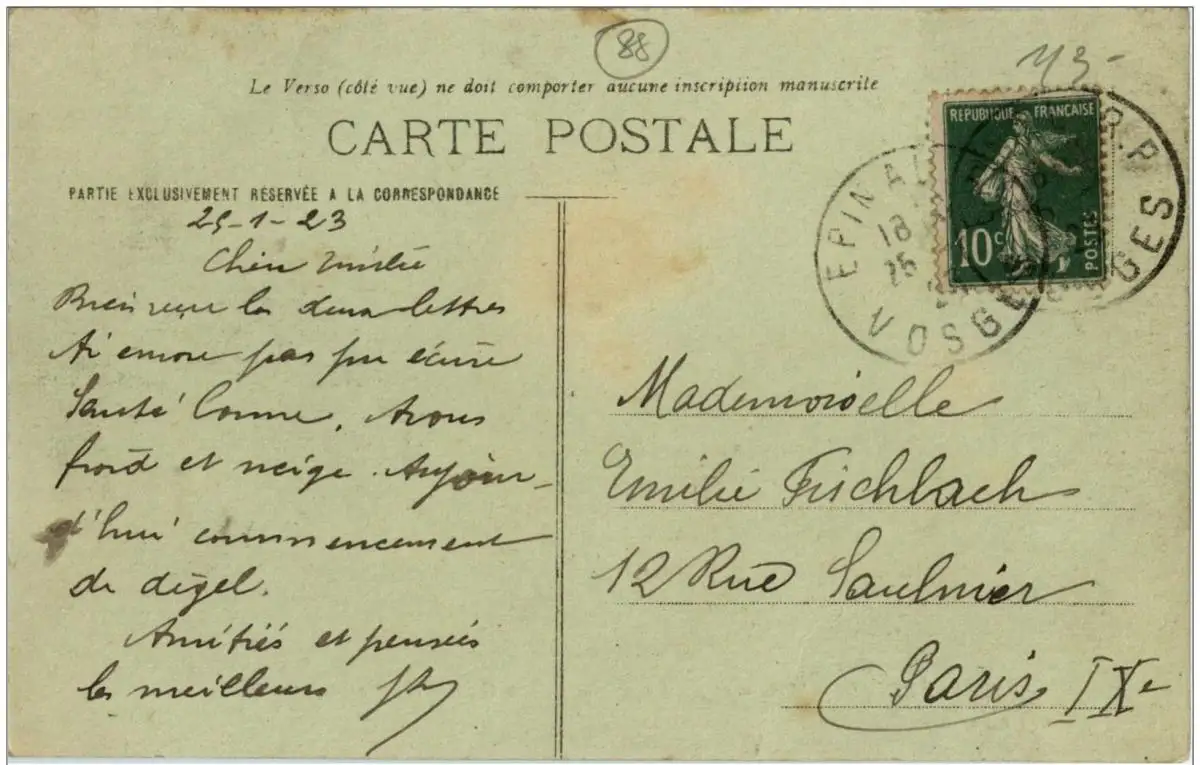 88
43-
Le Verso (côté vue) ne doit comporter aucune inscription manuscrite
CARTE POSTALE
REPUBLIQUE FRANÇAISE
10c
POSTES
EPINAL
18
25
VOSGES
R.P
GES
PARTIE EXCLUSIVEMENT RÉSERVÉE A LA CORRESPONDANCE
25-1-23
Chère Emilie
Bien reçu les deux lettres
Ai encore pas pu écrire
Santé bonne, Avons
froid et neige. Aujour-
d'hui commencement
de dégel.
Amitiés et pensées
les meilleures
Mademoiselle
Emilie Fischbach
12 Rue Saulnier
Paris IXe